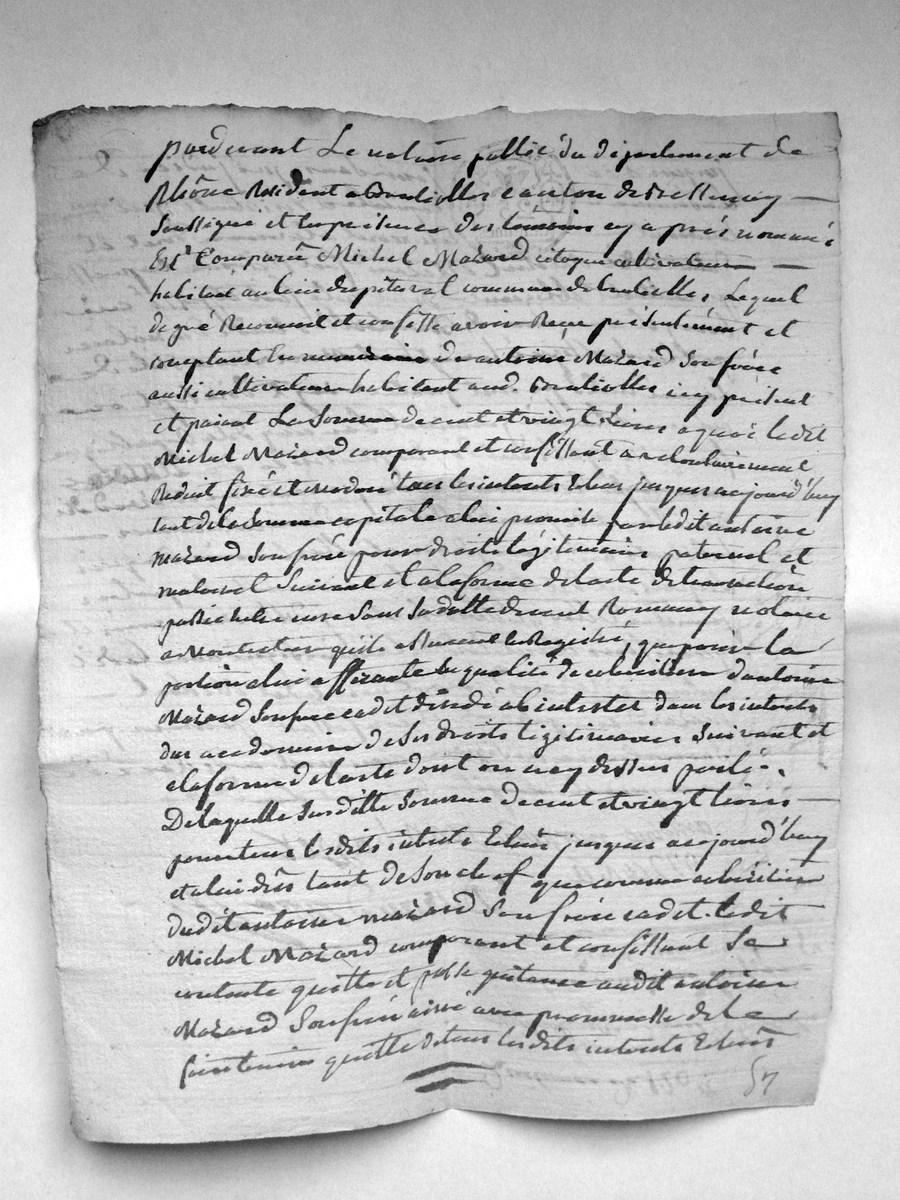 pardevant Le notaire public du département de
Rhône Résident a Brulliolles canton de Bessenay
Soussigné et En présence des témoins cy après nommés
Est Comparu Michel Mazard citoyen cultivateur
habitant au lieu de commune de brulliolles, Lequel
de gré Reconnoit et confesse avoir Reçu présentement et
comptant En numéraire de antoine Mazard Son frère
aussi cultivateur habitant aud. Brulliolles icy présent
et paiant La Somme de cent et vingt livres a quoi ledit
Michel Mazard comparant et confessant a volontairement
Réduit fixé et modéré tous les intérets Echus jusques aujourd'huy
tant de la Somme capitale a lui promise par ledit antoine
mazard Son frère pour droits légitimaires paternel et
maternel Suivant et a la forme de lacte de transaction
passé entre eux Sous Sa datte devant notaire
a qu'ils assurent En Registré, que pour la
portion a lui afférante En qualité de cohéritier dantoine
Mazard Son frère cadet décédé ab intestat dans les intérets
dus a ce dernier de Ses droits légitimaires Suivant et
a la forme de lacte dont on a cy dessus parlé.
De laquelle Susditte Somme de cent et vingt livres
pour tous lesdits intérets Echus jusques aujourd'huy
et a lui dus tant de Son chef que comme cohéritier
dudit antoine mazard Son frère cadet. ledit
Michel Mazard comparant et confessant Se
contente quitte et passe quittance audit antoine
Mazard Son frère ainé avec promesse de le
faire tenir quitte de tous lesdits intérets Echus